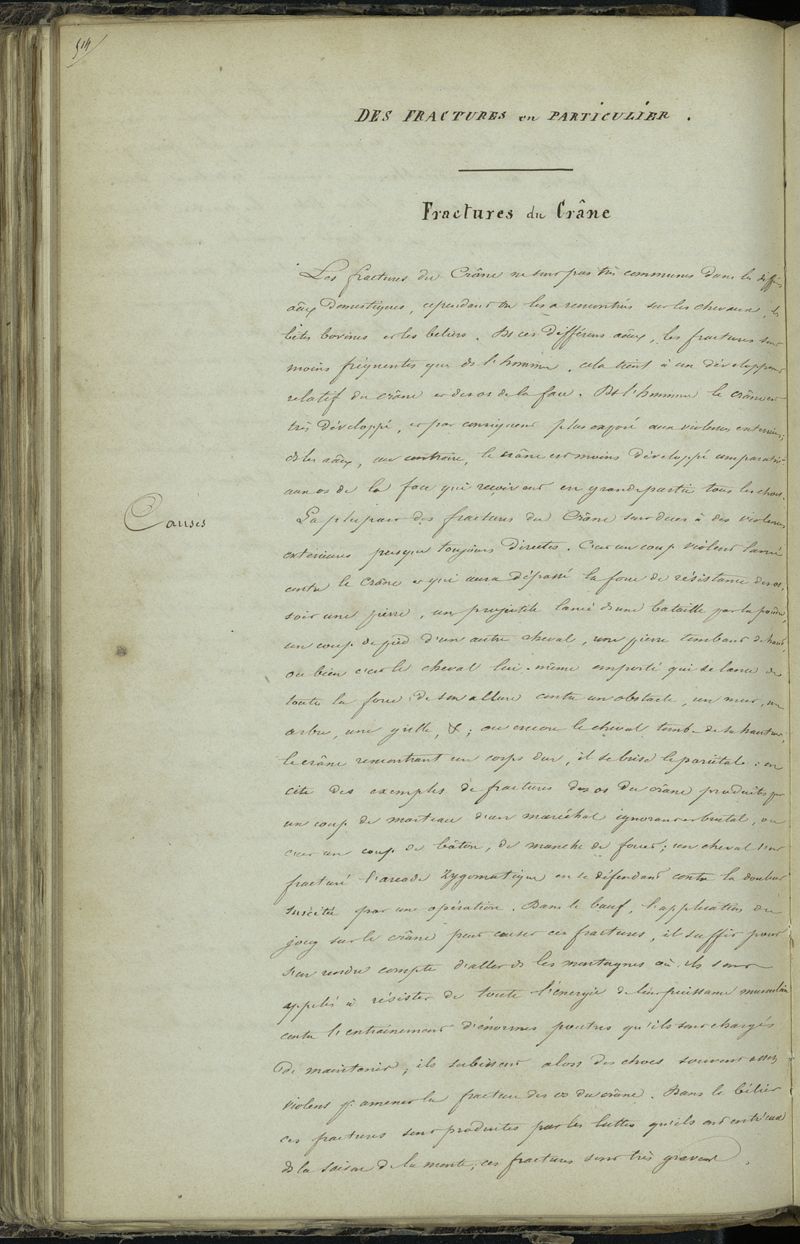 514
DES FRACTURES en PARTICULIER.
Fractures du Crâne
Les fractures du Crâne ne sont pas très communes dans les différ
aãux Domestiques, cependant on les a rencontrées sur les chevaux, les
bêtes bovines et les beliers. Ds ces différens aãux, les fractures sont
moins fréquentes que ds l'homme, cela tient à un développement
relatif du crâne et des os de la face. Ds l'homme le crâne est
très développé, et par conséquent plus exposé aux violences extérieures;
ds les aãux, au contraire, le crâne est moins développé comparativt
aux os de la face qui reçoivent en grande partie tous les chocs.
Causes
La plupart des fractures du Crâne sont dues à des violences
extérieures presque toujours directes. C'est un coup violent lancé
contre le crâne et qui aura dépassé la force de résistance des os,
soit une pierre, un projectile lancé ds une bataille par la poudre,
un coup de pied d'un autre cheval, une pierre tombant de haut,
ou bien c'est le cheval lui-même emporté qui se lance de
toute la force de son allure contre un obstacle, un mur, un
arbre, une grille, &; ou encore le cheval tombe de sa hauteur,
le crâne rencontrant un corps dur, il se brise le pariétal: on
cite des exemples de fractures des os du crâne produites par
un coup de marteau d'un maréchal ignorant et brutal, ou
avec un coup de bâton, de manche de fouet; un cheval s'est
fracturé l'arcade zygomatique en se défendant contre la douleur
suscitée par une opération. Dans le bœuf, l'application du
joug sur le crâne peut causer ces fractures, il suffit pour
s'en rendre compte d'aller ds les montagnes où ils sont
appelés à résister de toute l'énergie de leur puissance musculaire
contre l'entraînement d'énormes poutres qu'ils sont chargés
de maintenir; ils subissent alors des chocs souvent assez
violens pr amener la fracture des os du crâne. Dans le bélier
ces fractures sont produites par les luttes qu'ils ont entr'eux
ds la saison de la monte; ces fractures sont très graves.